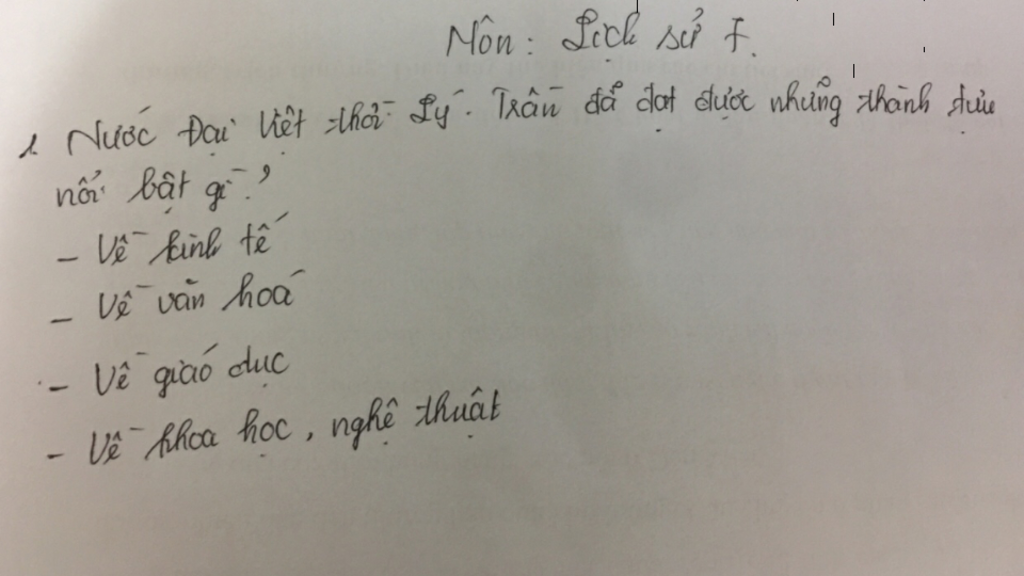 Môn: Lịch sử 7.
1. Nước Đại Việt thời Lý - Trần đã đạt được những thành tựu
nổi bật gì?
- Về kinh tế
- Về văn hoá
- Về giáo dục
- Về khoa học, nghệ thuật